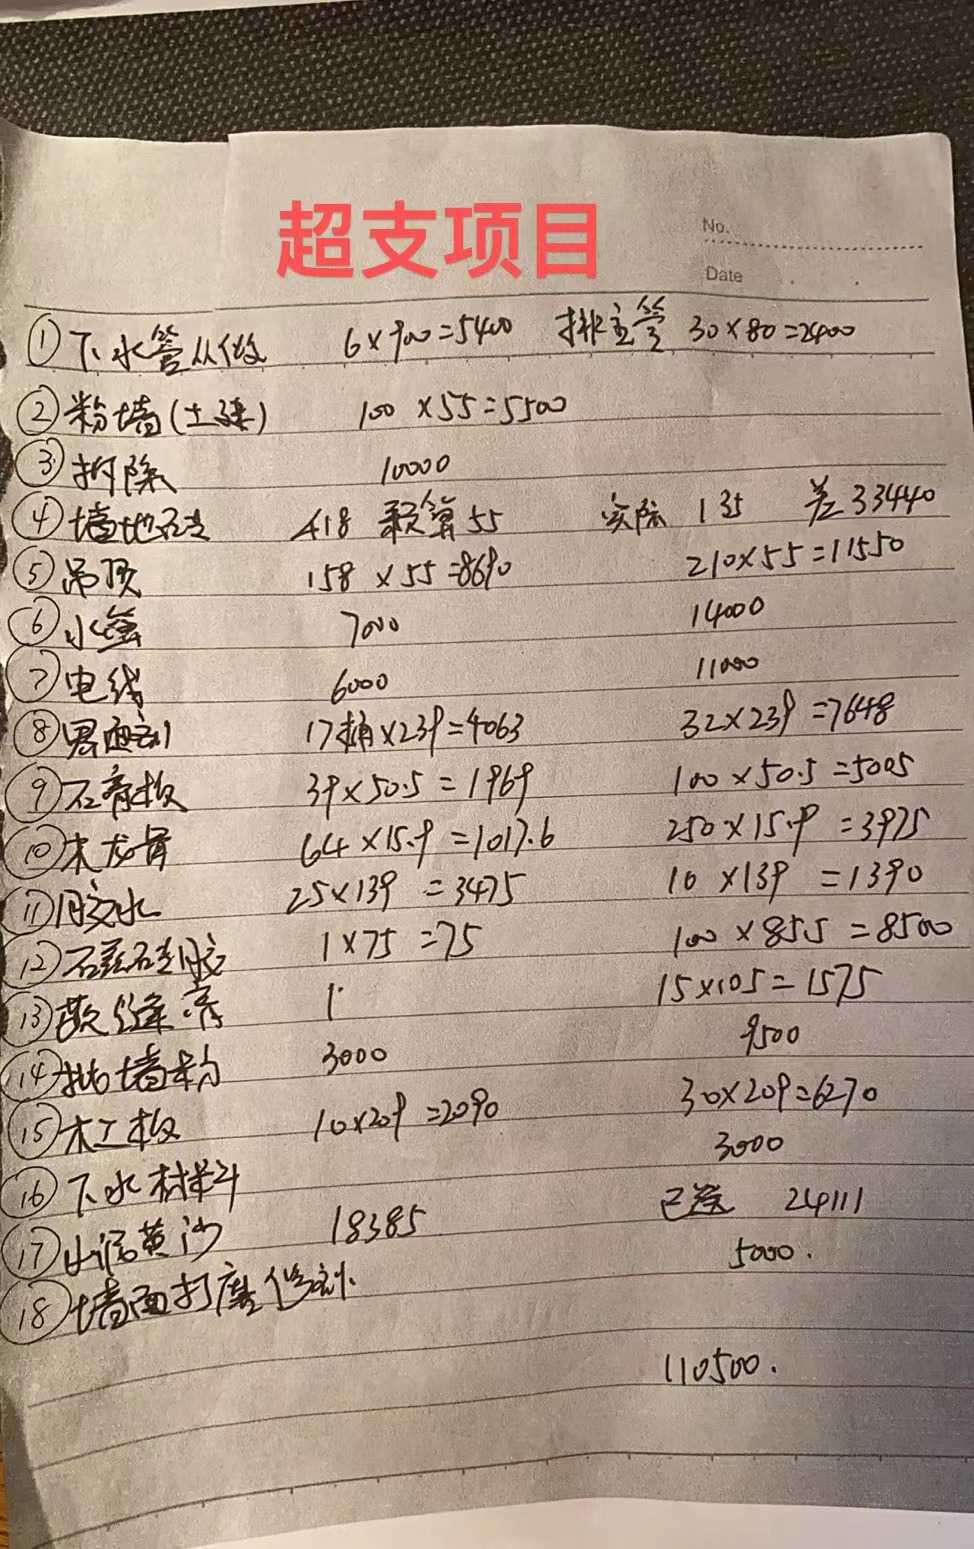 超支项目
No.
Date
① 下水管从做 6×900=5400 排主管 30×80=2400
② 粉墙(土 ) 100×55=5500
③ 拆除 10000
④ 墙地砖 418 预算55 实际 135 差33440
⑤ 吊顶 158×55=8690 210×55=11550
⑥ 水管 7000 14000
⑦ 电线 6000 11000
⑧ 界面剂 17桶×239=4063 32×239=7648
⑨ 石膏板 39×50.5=1969 100×50.5=5005
⑩ 木龙骨 64×15.9=1017.6 250×15.9=3975
⑪ 胶水 25×139=3475 10×139=1390
⑫ 瓷砖胶 1×75=75 100×85.5=8500
⑬ 嵌缝膏 1 15×105=1575
⑭ 批墙粉 3000 9500
⑮ 木工板 10×209=2090 30×209=6270
⑯ 下水材料 3000
⑰ 水泥黄沙 18385 已送 24111
⑱ 墙面打磨 5000.
110500.